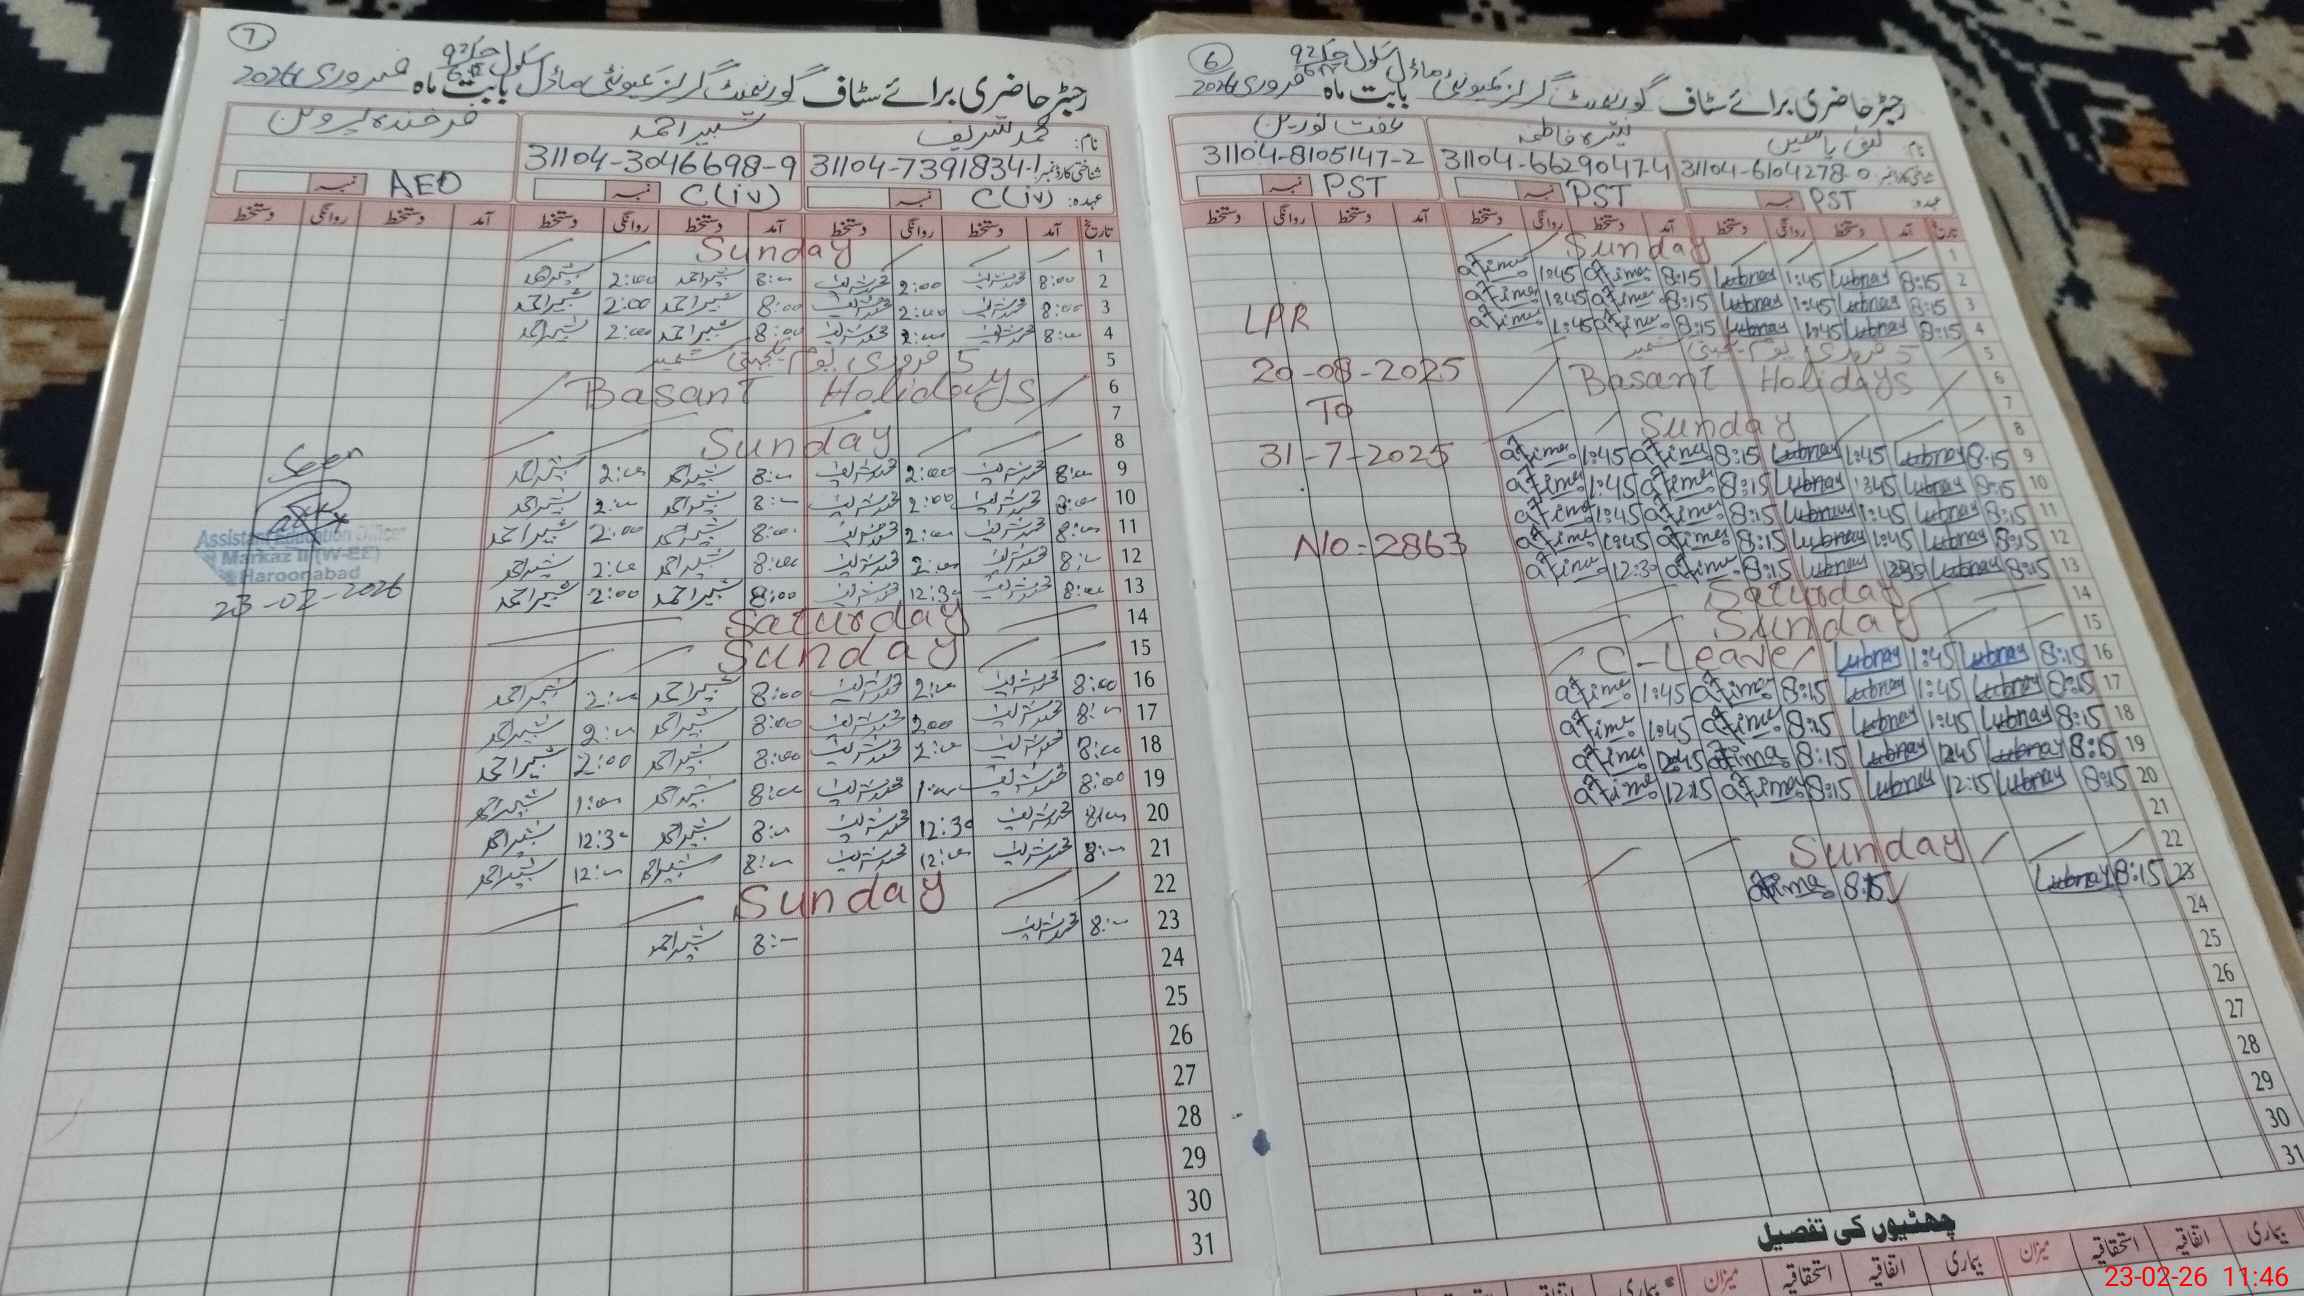 7
رجسٹر حاضری برائے سٹاف گورنمنٹ گرلز کمیونٹی ماڈل سکول چک 92 بابت ماہ فروری 2026
نام: محمد شریف شبیر احمد فرخندہ پروین
شناختی کارڈ نمبر 31104-7391834-1 31104-3046698-9
عہدہ: C(iv) C(iv) AEO
تاریخ آمد دستخط روانگی دستخط آمد دستخط روانگی دستخط آمد دستخط روانگی دستخط
1 Sunday
2 8:00 محمد شریف 2:00 محمد شریف 8:00 شبیر احمد 2:00 شبیر احمد
3 8:00 محمد شریف 2:00 محمد شریف 8:00 شبیر احمد 2:00 شبیر احمد
4 8:00 محمد شریف 2:00 محمد شریف 8:00 شبیر احمد 2:00 شبیر احمد
5 5 فروری یوم یکجہتی کشمیر
6 Basant Holidays
7
8 Sunday
9 8:00 محمد شریف 2:00 محمد شریف 8:00 شبیر احمد 2:00 شبیر احمد
Seen
10 8:00 محمد شریف 2:00 محمد شریف 8:00 شبیر احمد 2:00 شبیر احمد
11 8:00 محمد شریف 2:00 محمد شریف 8:00 شبیر احمد 2:00 شبیر احمد
Assistant Education Officer
Markaz II (W-EE)
Haroonabad
12 8:00 محمد شریف 2:00 محمد شریف 8:00 شبیر احمد 2:00 شبیر احمد
23-02-2026
13 8:00 محمد شریف 12:30 محمد شریف 8:00 شبیر احمد 2:00 شبیر احمد
14 Saturday
15 Sunday
16 8:00 محمد شریف 2:00 محمد شریف 8:00 شبیر احمد 2:00 شبیر احمد
17 8:00 محمد شریف 2:00 محمد شریف 8:00 شبیر احمد 2:00 شبیر احمد
18 8:00 محمد شریف 2:00 محمد شریف 8:00 شبیر احمد 2:00 شبیر احمد
19 8:00 محمد شریف 1:00 محمد شریف 8:00 شبیر احمد 1:00 شبیر احمد
20 8:00 محمد شریف 12:30 محمد شریف 8:00 شبیر احمد 12:30 شبیر احمد
21 8:00 محمد شریف 12:00 محمد شریف 8:00 شبیر احمد 12:00 شبیر احمد
22 Sunday
23 8:00 محمد شریف 8:00 شبیر احمد
24
25
26
27
28
29
30
31
6
رجسٹر حاضری برائے سٹاف گورنمنٹ گرلز کمیونٹی ماڈل سکول چک 92 بابت ماہ فروری 2026
نام: لبنیٰ یاسمین نیئرہ فاطمہ عفت نورین
شناختی کارڈ نمبر 31104-6104278-0 31104-6629047-4 31104-8105147-2
عہدہ: PST PST PST
تاریخ آمد دستخط روانگی دستخط آمد دستخط روانگی دستخط آمد دستخط روانگی دستخط
1 Sunday
2 8:15 Lubnay 1:45 Lubnay 8:15 aFima 1:45 aFima
3 8:15 Lubnay 1:45 Lubnay 8:15 aFima 1:45 aFima
4 8:15 Lubnay 1:45 Lubnay 8:15 aFima 1:45 aFima LPR
5 5 فروری یوم یکجہتی کشمیر
6 Basant Holidays 20-08-2025
7 To
8 Sunday
9 8:15 Lubnay 1:45 Lubnay 8:15 aFima 1:45 aFima 31-7-2025
10 8:15 Lubnay 1:45 Lubnay 8:15 aFima 1:45 aFima
11 8:15 Lubnay 1:45 Lubnay 8:15 aFima 1:45 aFima
12 8:15 Lubnay 1:45 Lubnay 8:15 aFima 1:45 aFima No=2863
13 8:15 Lubnay Lubnay 8:15 aFima 12:30 aFima
14 Saturday
15 Sunday
16 8:15 Lubnay 1:45 Lubnay C-Leave
17 8:15 Lubnay 1:45 Lubnay 8:15 aFima 1:45 aFima
18 8:15 Lubnay 1:45 Lubnay 8:15 aFima 1:45 aFima
19 8:15 Lubnay 12:45 Lubnay 8:15 aFima 12:45 aFima
20 8:15 Lubnay 12:15 Lubnay 8:15 aFima 12:15 aFima
21
22 Sunday
23 8:15 Lubnay 8:15 aFima
24
25
26
27
28
29
30
31
چھٹیوں کی تفصیل
بیماری اتفاقیہ استحقاقیہ میزان بیماری اتفاقیہ استحقاقیہ میزان بیماری
23-02-26 11:46